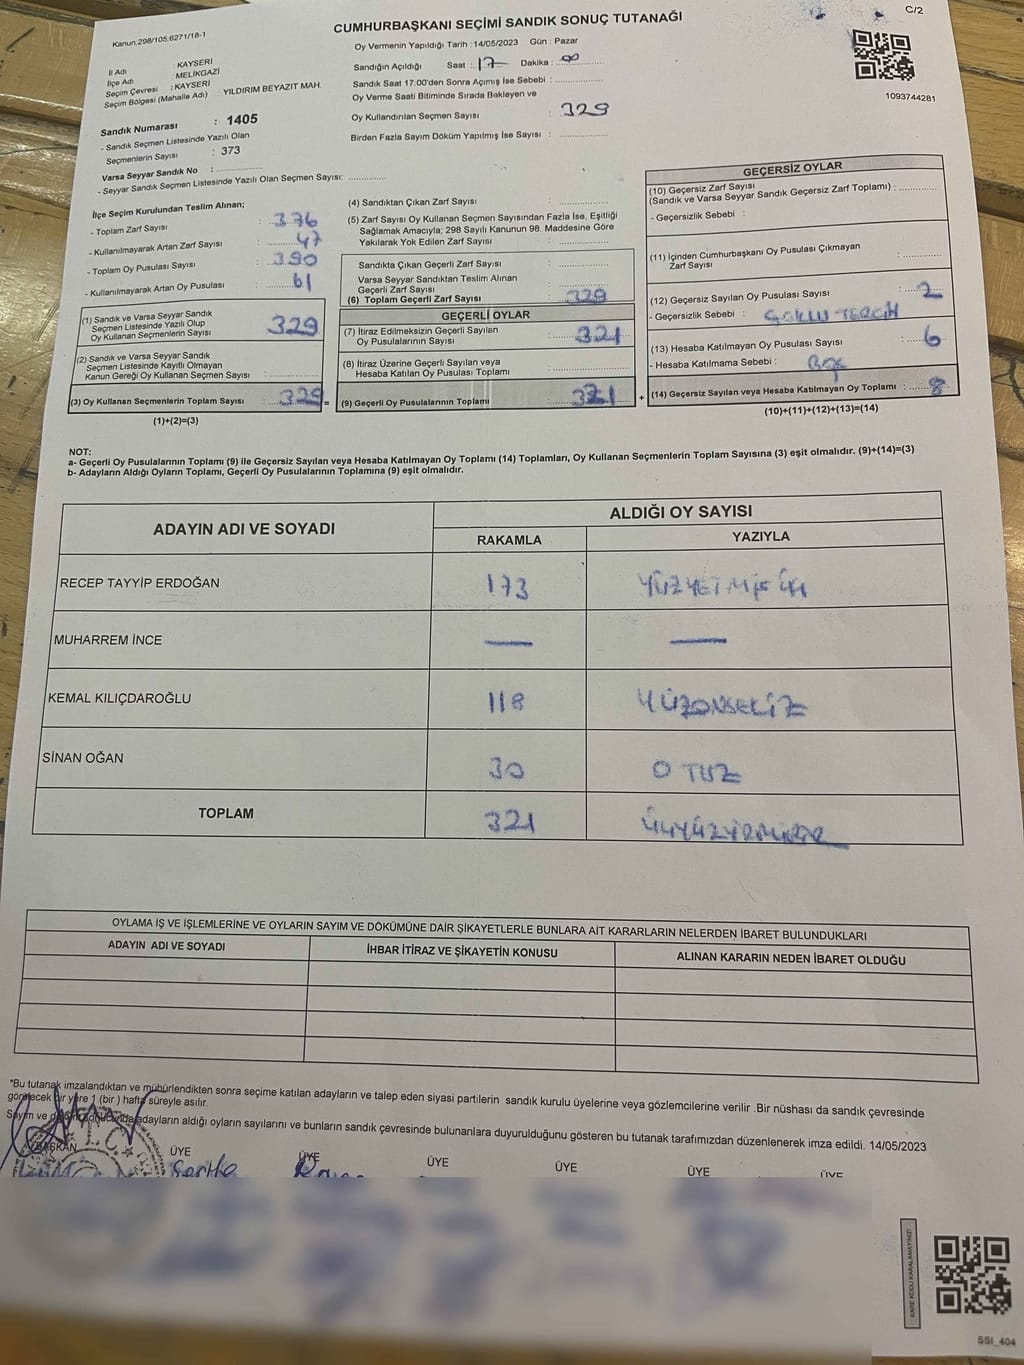 C/2
CUMHURBAŞKANI SEÇİMİ SANDIK SONUÇ TUTANAĞI
Kanun:298/105;6271/18-1
Oy Vermenin Yapıldığı Tarih :14/05/2023 Gün : Pazar
İl Adı : KAYSERİ
İlçe Adı MELİKGAZİ
Seçim Çevresi : KAYSERİ
Seçim Bölgesi (Mahalle Adı) : YILDIRIM BEYAZIT MAH.
Sandığın Açıldığı Saat : 17 Dakika : 00
Sandık Saat 17:00'den Sonra Açımış İse Sebebi :
Oy Verme Saati Bitiminde Sırada Bekleyen ve
Oy Kullandırılan Seçmen Sayısı : 329
Birden Fazla Sayım Döküm Yapılmış İse Sayısı :
1093744281
Sandık Numarası : 1405
- Sandık Seçmen Listesinde Yazılı Olan
Seçmenlerin Sayısı : 373
Varsa Seyyar Sandık No :
- Seyyar Sandık Seçmen Listesinde Yazılı Olan Seçmen Sayısı:
İlçe Seçim Kurulundan Teslim Alınan;
- Toplam Zarf Sayısı : 376
- Kullanılmayarak Artan Zarf Sayısı : 47
- Toplam Oy Pusulası Sayısı : 390
- Kullanılmayarak Artan Oy Pusulası : 61
(1) Sandık ve Varsa Seyyar Sandık
Seçmen Listesinde Yazılı Olup
Oy Kullanan Seçmenlerin Sayısı 329
(2) Sandık ve Varsa Seyyar Sandık
Seçmen Listesinde Kayıtlı Olmayan
Kanun Gereği Oy Kullanan Seçmen Sayısı :
(3) Oy Kullanan Seçmenlerin Toplam Sayısı 329 =
(1)+(2)=(3)
(4) Sandıktan Çıkan Zarf Sayısı :
(5) Zarf Sayısı Oy Kullanan Seçmen Sayısından Fazla İse, Eşitliği
Sağlamak Amacıyla; 298 Sayılı Kanunun 98. Maddesine Göre
Yakılarak Yok Edilen Zarf Sayısı :
Sandıkta Çıkan Geçerli Zarf Sayısı :
Varsa Seyyar Sandıktan Teslim Alınan
Geçerli Zarf Sayısı :
(6) Toplam Geçerli Zarf Sayısı 329
GEÇERLİ OYLAR
(7) İtiraz Edilmeksizin Geçerli Sayılan
Oy Pusulalarının Sayısı : 321
(8) İtiraz Üzerine Geçerli Sayılan veya
Hesaba Katılan Oy Pusulası Toplamı :
(9) Geçerli Oy Pusulalarının Toplamı : 321 +
GEÇERSİZ OYLAR
(10) Geçersiz Zarf Sayısı
(Sandık ve Varsa Seyyar Sandık Geçersiz Zarf Toplamı) :
- Geçersizlik Sebebi :
(11) İçinden Cumhurbaşkanı Oy Pusulası Çıkmayan
Zarf Sayısı :
(12) Geçersiz Sayılan Oy Pusulası Sayısı : 2
- Geçersizlik Sebebi : ÇOKLU TERCİH
(13) Hesaba Katılmayan Oy Pusulası Sayısı : 6
- Hesaba Katılmama Sebebi : BOŞ
(14) Geçersiz Sayılan veya Hesaba Katılmayan Oy Toplamı : 8
(10)+(11)+(12)+(13)=(14)
NOT:
a- Geçerli Oy Pusulalarının Toplamı (9) ile Geçersiz Sayılan veya Hesaba Katılmayan Oy Toplamı (14) Toplamları, Oy Kullanan Seçmenlerin Toplam Sayısına (3) eşit olmalıdır. (9)+(14)=(3)
b- Adayların Aldığı Oyların Toplamı, Geçerli Oy Pusulalarının Toplamına (9) eşit olmalıdır.
ADAYIN ADI VE SOYADI
ALDIĞI OY SAYISI
RAKAMLA YAZIYLA
RECEP TAYYİP ERDOĞAN 173 YÜZYETMİŞ ÜÇ
MUHARREM İNCE — —
KEMAL KILIÇDAROĞLU 118 YÜZONSEKİZ
SİNAN OĞAN 30 OTUZ
TOPLAM 321 ÜÇYÜZYİRMİBİR
OYLAMA İŞ VE İŞLEMLERİNE VE OYLARIN SAYIM VE DÖKÜMÜNE DAİR ŞİKAYETLERLE BUNLARA AİT KARARLARIN NELERDEN İBARET BULUNDUKLARI
ADAYIN ADI VE SOYADI İHBAR İTİRAZ VE ŞİKAYETİN KONUSU ALINAN KARARIN NEDEN İBARET OLDUĞU
"Bu tutanak imzalandıktan ve mühürlendikten sonra seçime katılan adayların ve talep eden siyasi partilerin sandık kurulu üyelerine veya gözlemcilerine verilir .Bir nüshası da sandık çevresinde
görülecek bir yere 1 (bir ) hafta süreyle asılır.
Sayım ve adayların aldığı oyların sayılarını ve bunların sandık çevresinde bulunanlara duyurulduğunu gösteren bu tutanak tarafımızdan düzenlenerek imza edildi. 14/05/2023
BAŞKAN ÜYE ÜYE ÜYE ÜYE ÜYE ÜYE
T.C.
KARE KODU KARALAMAYINIZ!
SSI_404